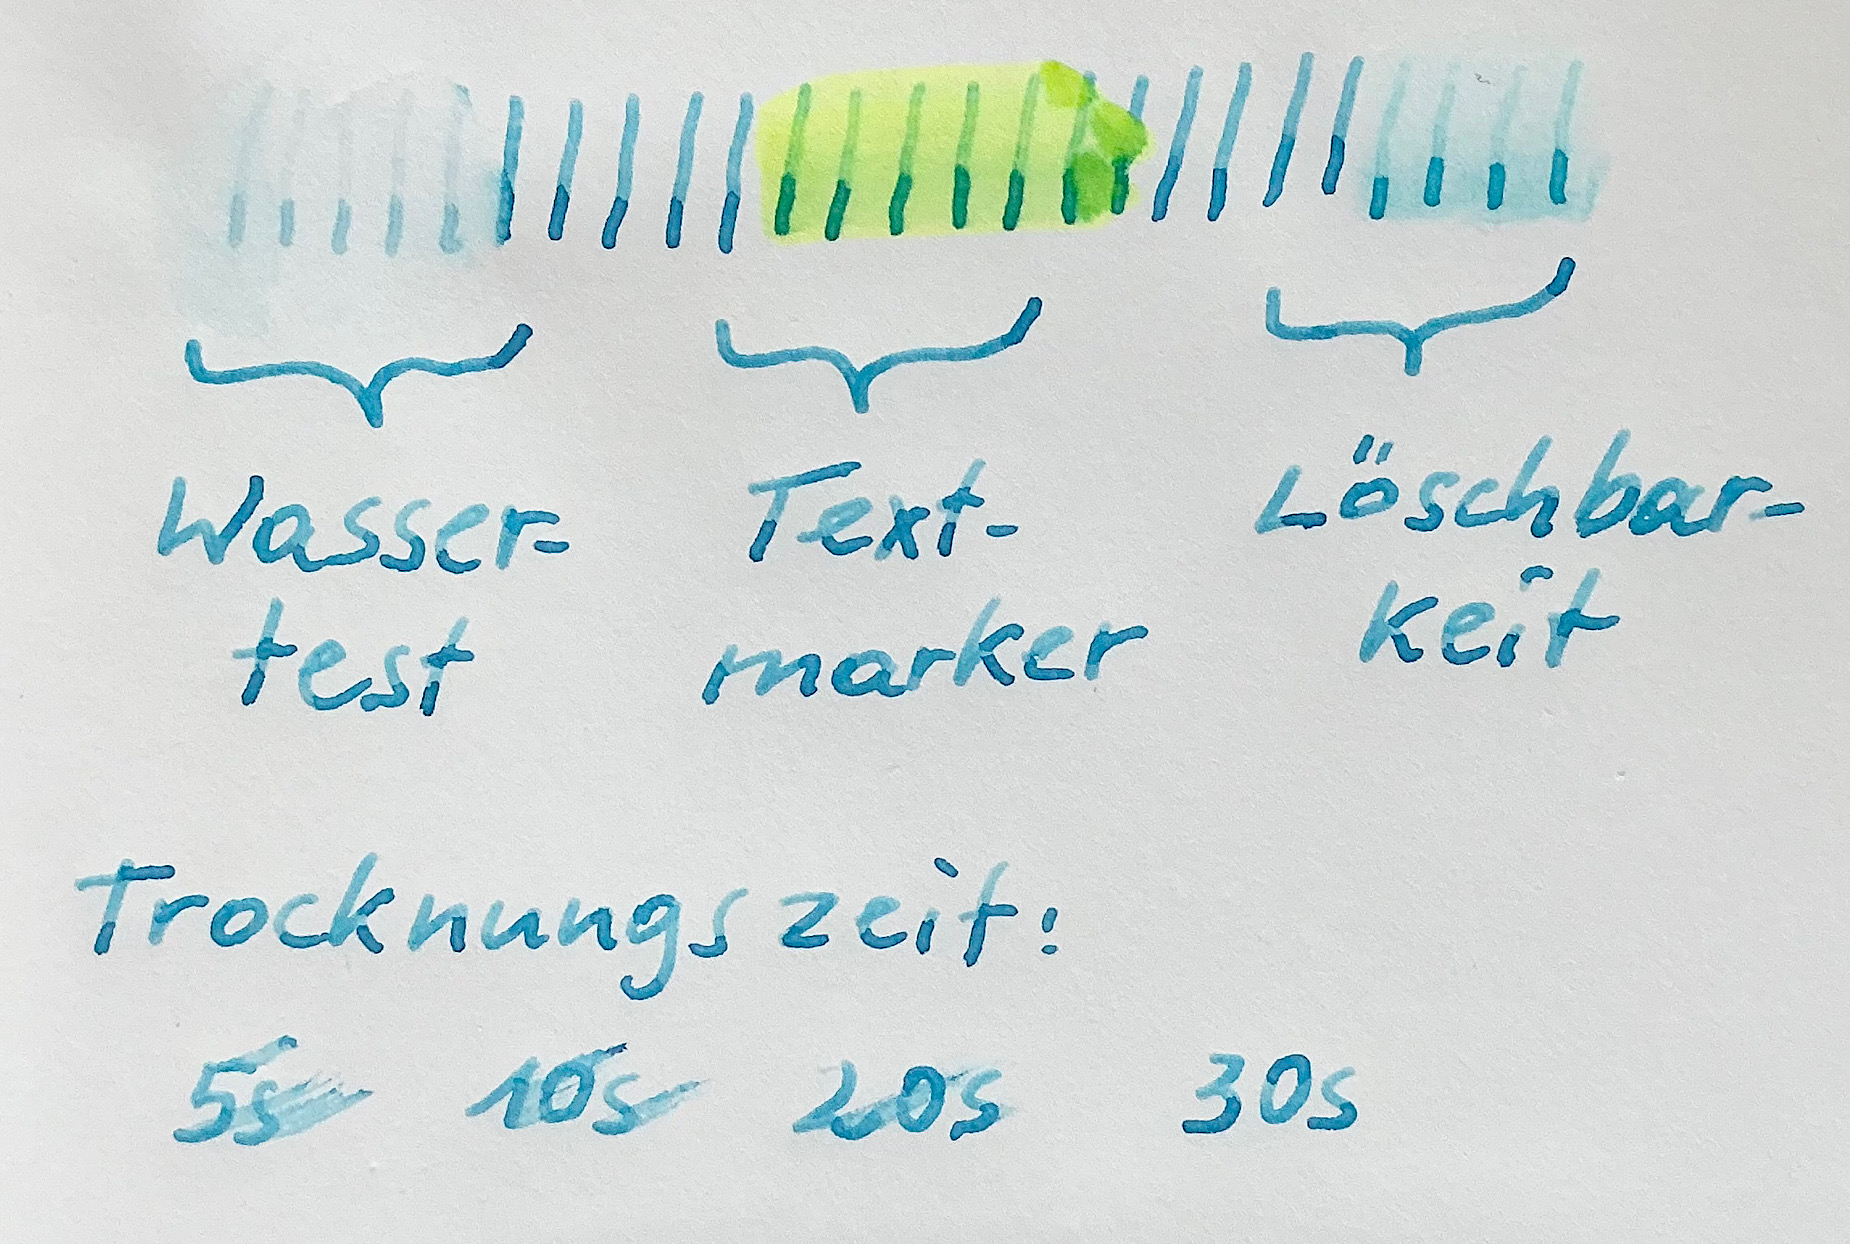 Wasser-
test
Text-
marker
Löschbar-
keit
Trocknungszeit:
5s 10s 20s 30s